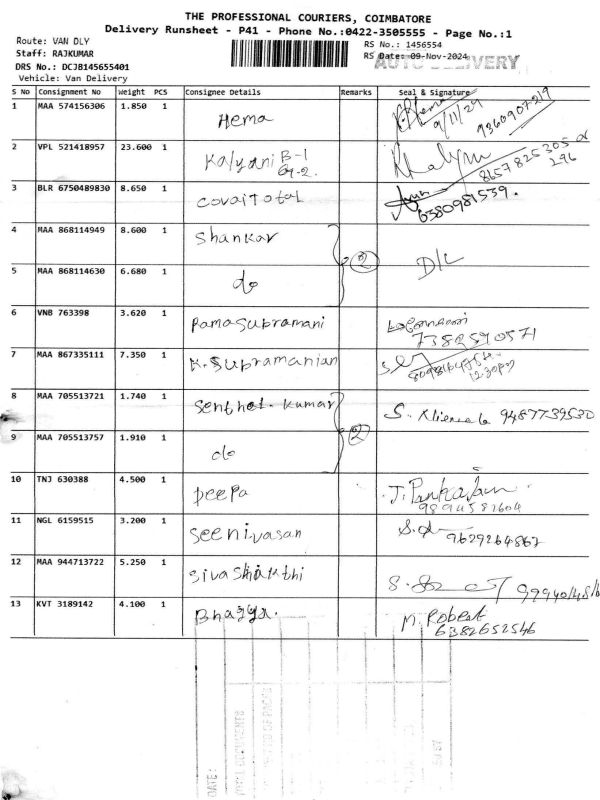 THE PROFESSIONAL COURIERS, COIMBATORE
Delivery Runsheet - P41 - Phone No.:0422-3505555 - Page No.:1
Route: VAN DLY
RS No.: 1456554
Staff: RAJKUMAR
RS Date: 09-Nov-2024
AUTO DELIVERY
DRS No.: DCJB145655401
Vehicle: Van Delivery
S No Consignment No Weight PCS Consignee Details Remarks Seal & Signature
1 MAA 574156306 1.850 1 Hema 9/11/24 9360907219
2 VPL 521418957 23.600 1 Kalyani B-1 8657825305
296
3 BLR 6750489830 8.650 1 covaiTotal 6380981539.
4 MAA 868114949 8.600 1 Shankar
2 D/L
5 MAA 868114630 6.680 1 do
6 VNB 763398 3.620 1 Ramasubramani
7382590571
7 MAA 867335111 7.350 1 K.Subramanian
12.30pm
8 MAA 705513721 1.740 1 Senthot. Kumar S. 9487739530
2
9 MAA 705513757 1.910 1 do
10 TNJ 630388 4.500 1 Deepa J.
9894581604
11 NGL 6159515 3.200 1 Seenivasan
9629264867
12 MAA 944713722 5.250 1 Sivashakthi
13 KVT 3189142 4.100 1 Bhagya. M. Robert
6382652546
DATE: